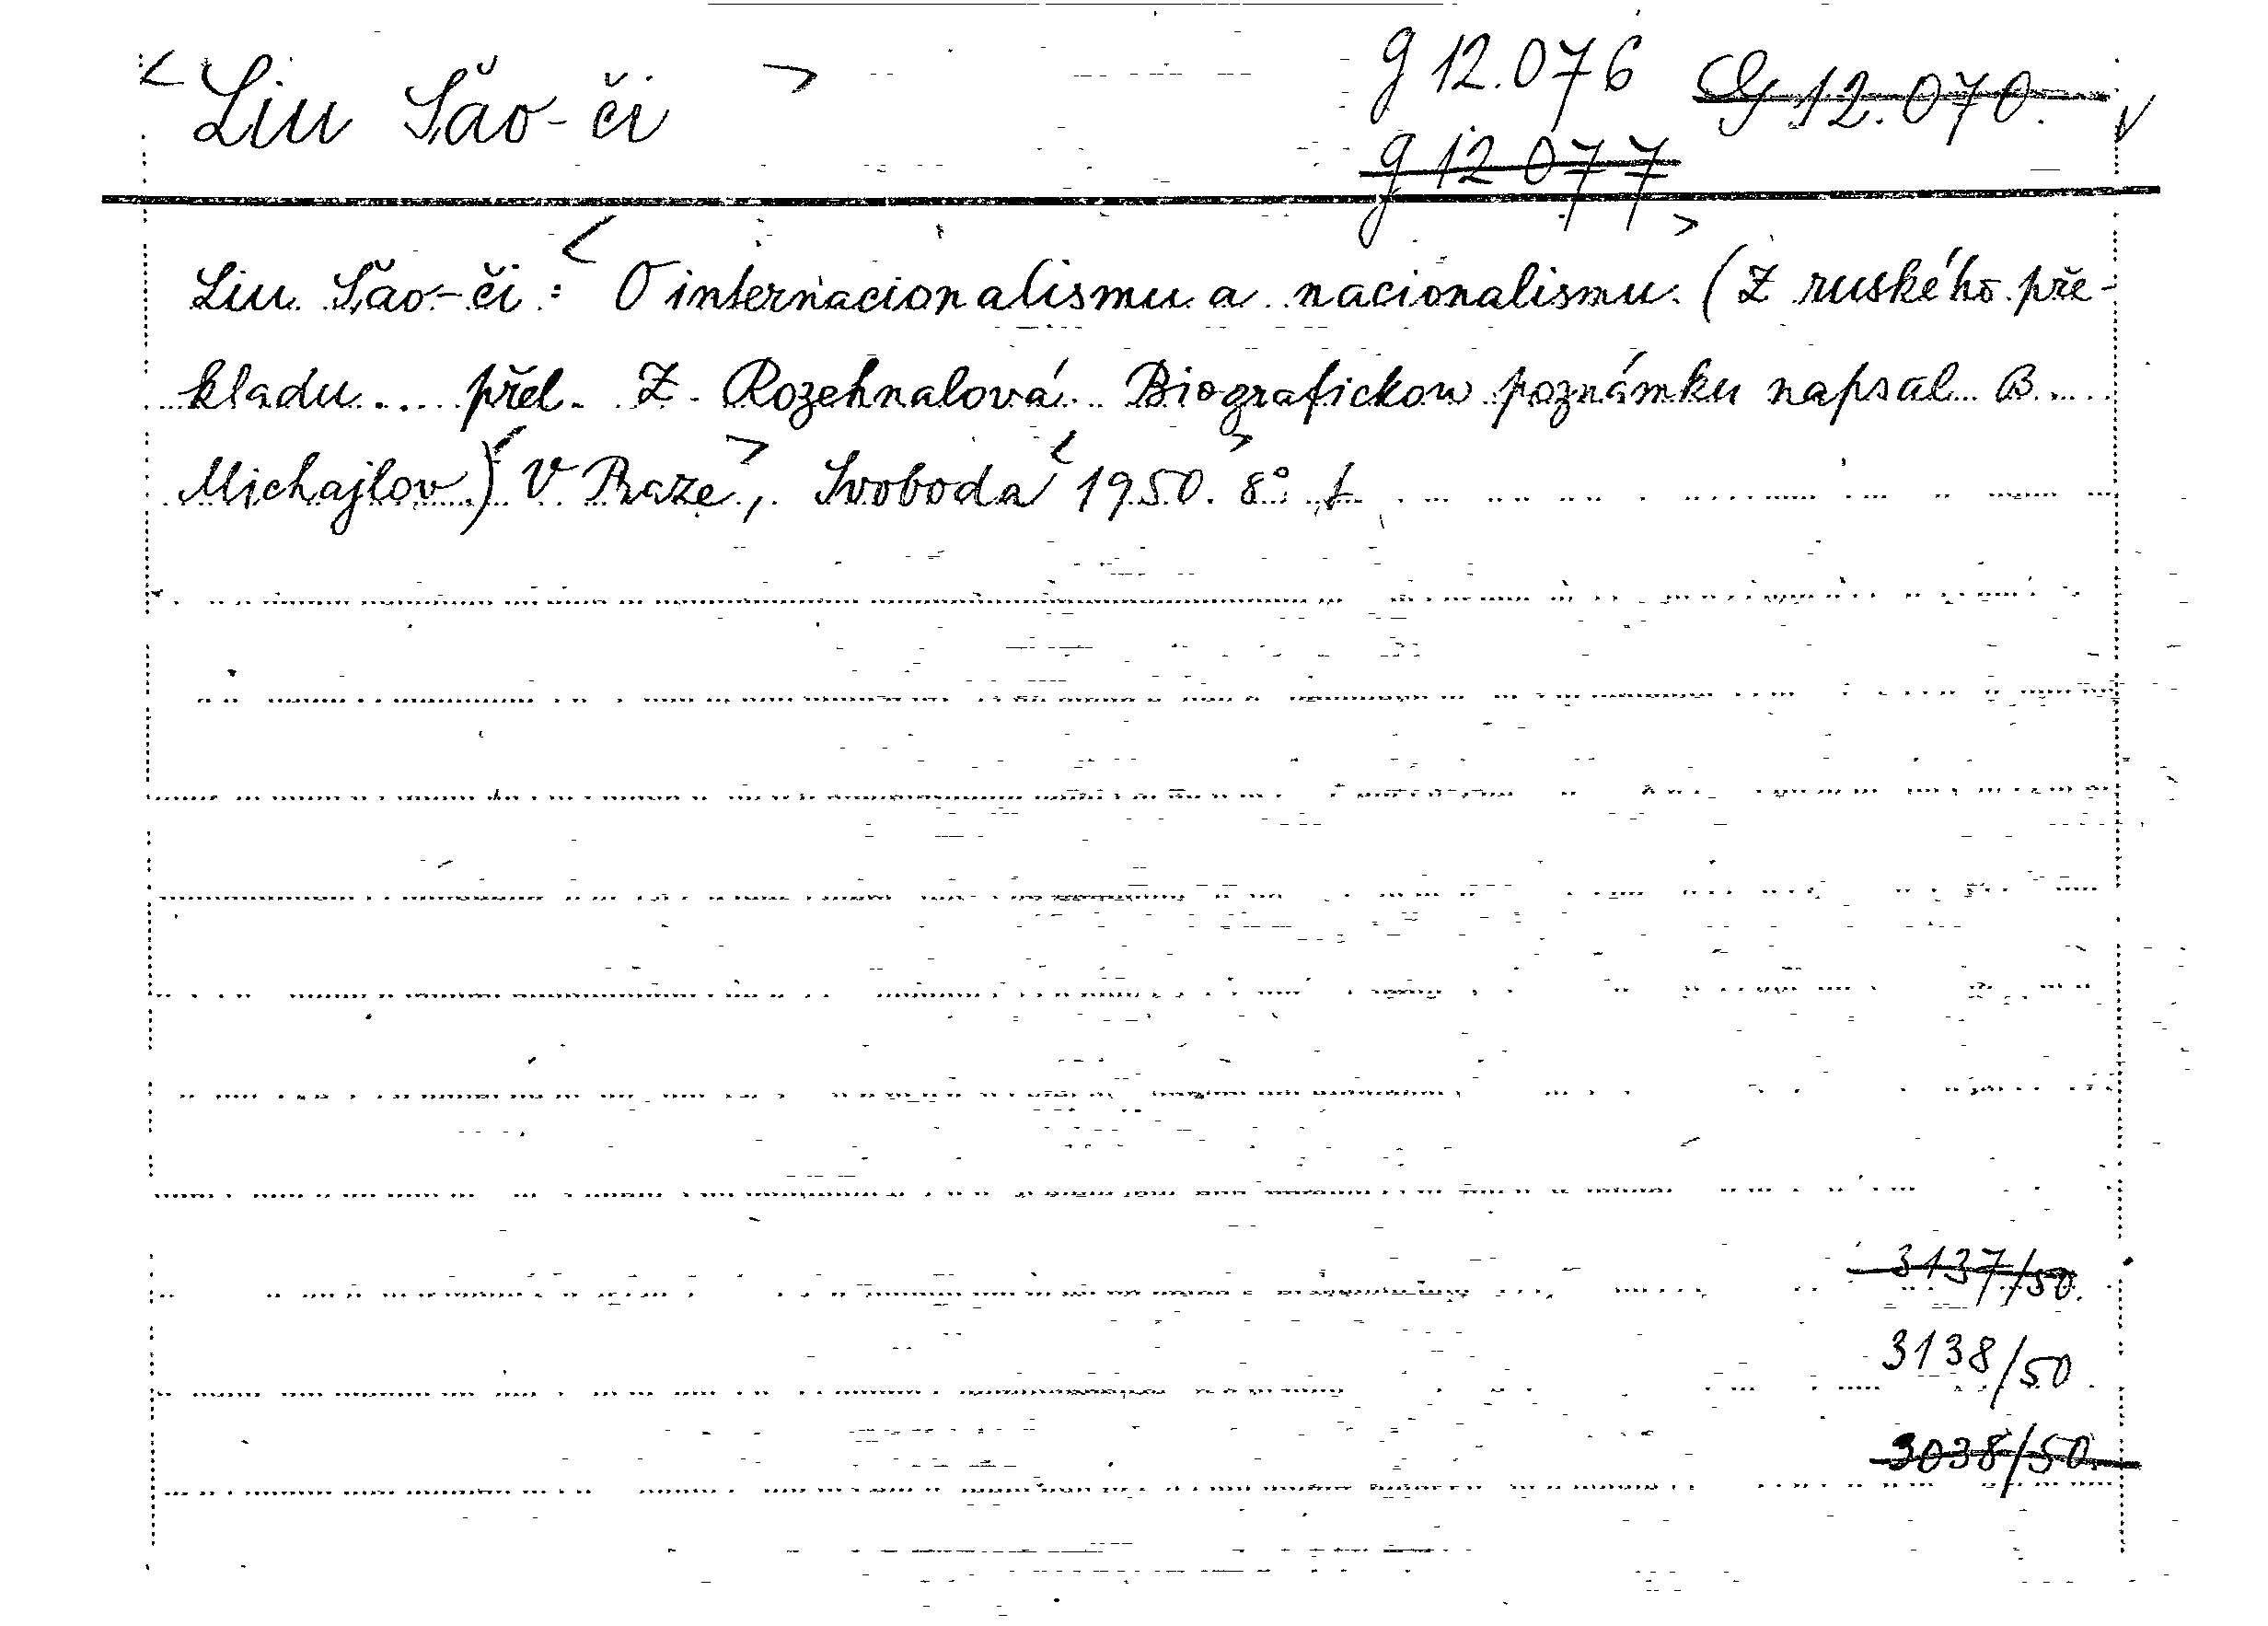 < Liu Šao-či > g 12.076 G 12.070. v
g 12 077
Liu Šao-či: < O internacionalismu a nacionalismu. > (Z ruského pře-
kladu.... přel. Z. Rozehnalová. Biografickou poznámku napsal B.
Michajlov) < V Praze >, Svoboda < 1950. > 8°.
3137/50.
3138/50
3038/50.